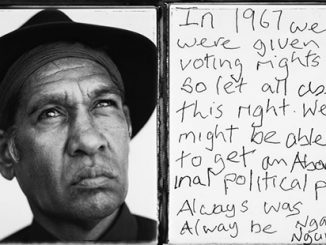 In 1967 we
were given
voting rights
So let all
this right. We
might be able
to get an Abo
inal political p
Always was
Alway be Nga